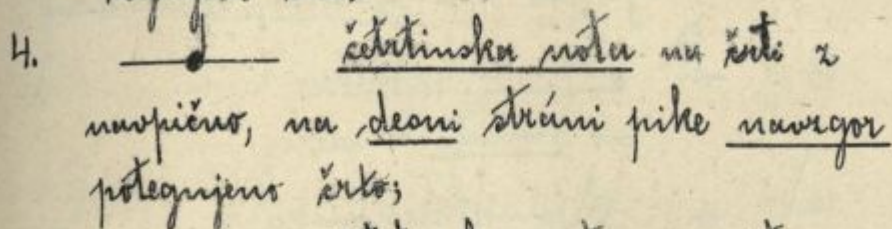 4. četrtinska nota na črti z
navpično, na desni stráni pike navzgor
potegnjeno črto;